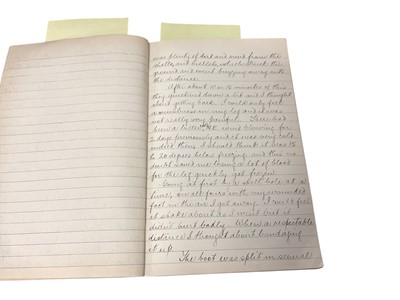 was plenty of dirt and mud from the
shells, and bullets, which struck the
ground and went buzzing away into
the distance.
After about 10 or 15 minutes of this
they quietened down a bit and I thought
about getting back. I could only feel
a numbness in my leg and it was
not really very painful. There had
been a bitter NE wind blowing for
2 days previously and it was very cold
indeed then. I should think it was 15
to 20 degrees below freezing and this no
doubt saved me losing a lot of blood
for the leg quickly got frozen.
Going at first by a shell hole at a
time, on all fours with my wounded
foot in the air I got away. I could feel
it shake about as I went but it
didnt hurt badly. When a respectable
distance I thought about bandaging
it up.
The boot was split in several